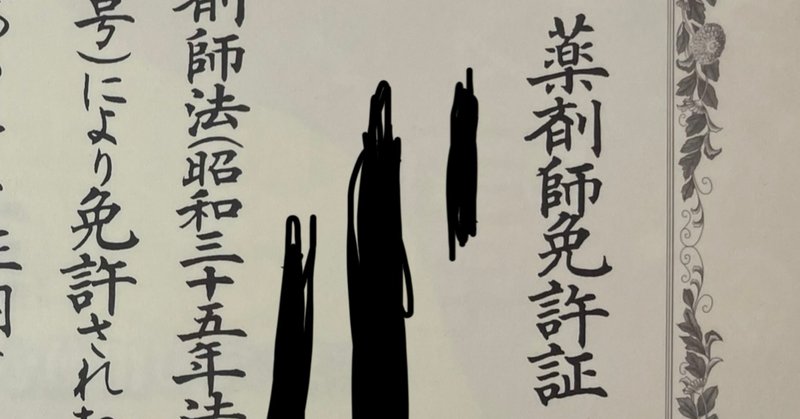 薬剤師免許証
剤師法(昭和三十五年法
号)により免許された